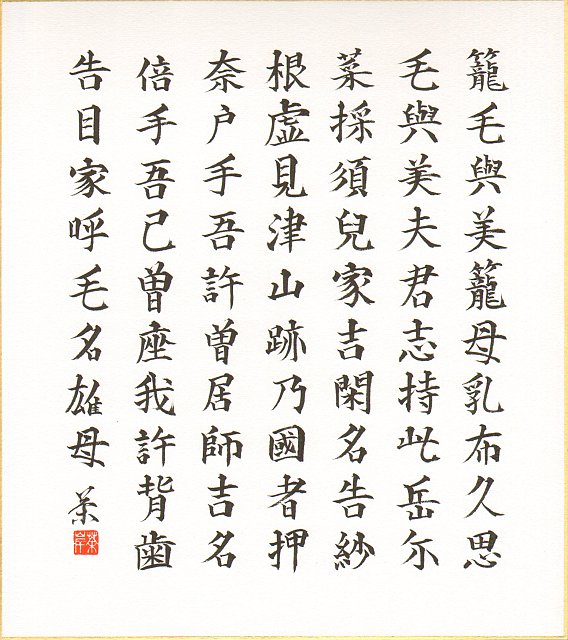 籠毛與美籠母乳布久思
毛與美夫君志持此岳尓
菜採須兒家吉閑名告紗
根虚見津山跡乃國者押
奈户手吾許曽居師吉名
倍手吾己曽座我許背歯
告目家呼毛名雄母